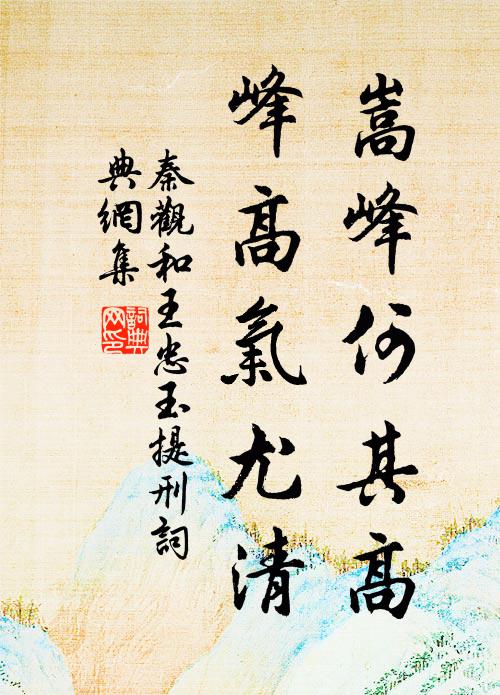 嵩峰何其高
峰高氣尤清
秦觀和王忠玉提刑詞
典網集
詞典网印